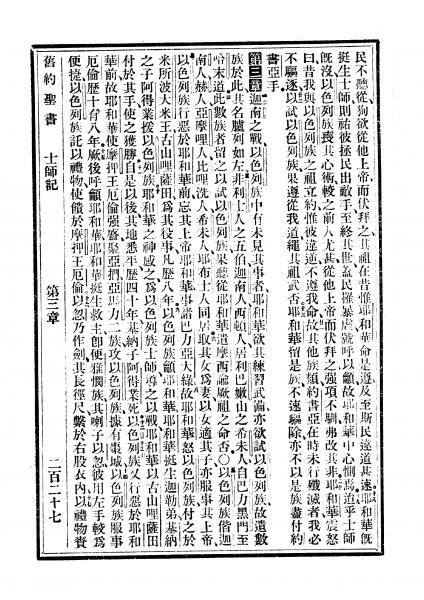 民不聽從、徇欲從他上帝、而伏拜之、其祖在昔、惟耶和華命是遵、及至斯民、違道甚速、耶和華既
挺生士師、則祐彼拯民、出敵手、至終其世、蓋民罹暴虐、號呼以籲、故耶和華中心惻焉、迨乎士師
既沒、以色列族喪其心、術較之前人尤甚、從他上帝、而伏拜之、強項不馴、弗改其非、耶和華震怒、
曰、昔我與以色列族之祖立約、惟彼違逆、不遵我命、故其他族類、約書亞在時、未行殲滅者、我必
不驅逐、以試以色列族、果遵從我道、繩其祖武否、耶和華留是族、不速驅除、亦不以是族盡付約
書亞手、
第三章 迦南之戰、以色列族中有未見其事者、耶和華欲其練習武備、亦欲試以色列族、故遺數
族於此、其名臚列如左、非利士人之五伯、迦南人、西頓人、居利巴嫩山之希未人、自巴力黑門至
哈末道、此數族者留之以試以色列族、果聽從耶和華、遵摩西諭厥祖之命否、〇以色列族偕迦
南人、赫人、亞摩哩人、比哩洗人、希未人、耶布士人同居、取其女爲妻、以女適其子、亦服事其上帝、
以色列族行惡於耶和華前、忘其上帝耶和華、事諸巴力亞大綠、故耶和華怒以色列族、付之於
米所波大米王古山哩薩田、爲其役事、凡歷八年、以色列族籲耶和華、耶和華挺生迦勒弟基納
之子阿得業、援以色列族、耶和華之神感之、爲以色列族士師、導之以戰、耶和華以古山哩薩田
付於其手、使之獲勝、自是以後、其地悉平、歷四十年、基納子阿得業死、以色列族又行惡於耶和
華前、故耶和華使摩押王厄倫強盛、聚亞捫亞馬力二族、攻以色列族、據有棗城、以色列族服事
厄倫、歷十有八年、厥後呼籲耶和華、耶和華挺生救主、卽便雅憫族其喇子以忽、彼用左手、較爲
便捷、以色列族託以禮物、使饋於摩押王厄倫、以忽乃作劍、其長徑尺、繫於右股衣內、以禮物賚
舊約聖書 士師記 第三章 二百二十七